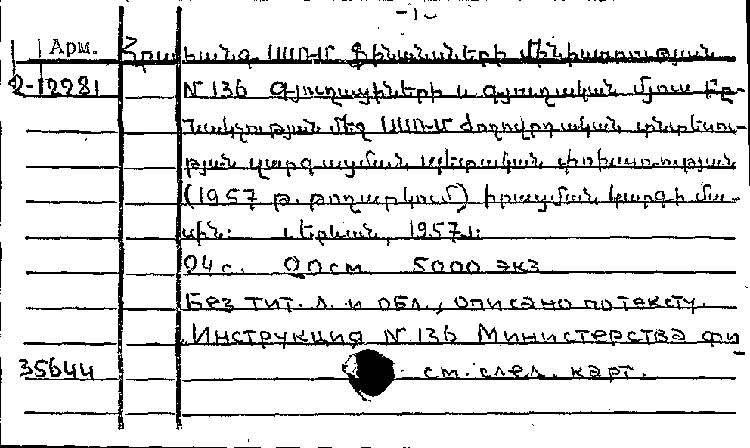 -1-
Арм. Հրահանգ ՍՍՌՄ Ֆինանսների Մինիստրության
2-12281 N 136 Գյուղացիների և գյուղական մյուս բը-
նակչության մեջ ՍՍՌՄ ժողովրդական տնտեսու-
թյան զարգացման պետական փոխառության
(1957 թ. թողարկում) իրացման կարգի մա-
սին: Երևան, 1957 թ.
24 с. 20 см 5000 экз
Без тит. л. и обл., описано по тексту.
Инструкция N 136 Министерства фи-
35644 см. след. карт.